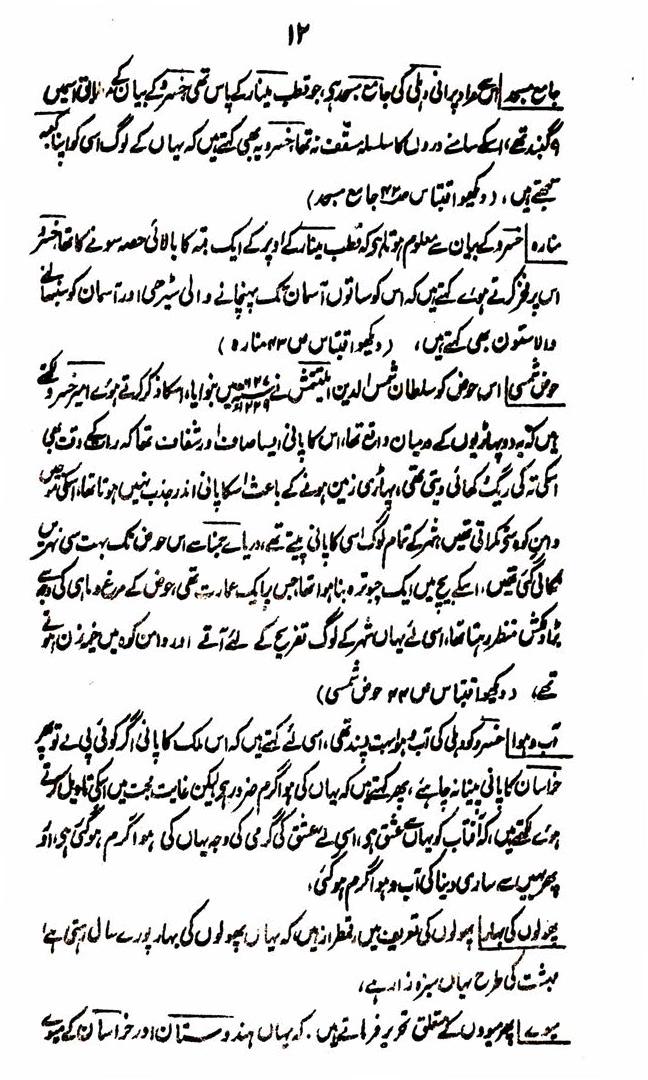 ۱۲
جامع مسجد | اس سے مراد پرانی دہلی کی جامع مسجد ہی، جو قطب مینار کے پاس تھی خسرو کے بیان کے مطابق اسمیں
۹ گنبد تھے، اسکے سامنے دروں کا سلسلہ مسقف نہ تھا، خسرو یہ بھی کہتے ہیں کہ یہاں کے لوگ اسی کو اپنا کعبہ
سمجھتے ہیں، (دیکھو اقتباس ص ۴۲ جامع مسجد)
منارہ | خسرو کے بیان سے معلوم ہوتا ہی کہ قطب مینار کے اوپر کے ایک قبہ کا بالائی حصہ سونے کا تھا خسرو
اس پر فخر کرتے ہوئے کہتے ہیں کہ اس کو ساتوں آسمان تک پہنچانے والی سیڑھی اور آسمان کو سنبھالنے
والا ستون بھی کہتے ہیں، (دیکھو اقتباس ص ۴۳ منارہ)
حوض شمسی | اس حوض کو سلطان شمس الدین التمش نے ۶۲۷ھ ۱۲۲۹ء میں بنوایا، اسکا ذکر کرتے ہوئے امیر خسرو لکھتے
ہیں کہ یہ دو پہاڑیوں کے درمیان واقع تھا، اس کا پانی ایسا صاف اور شفاف تھا کہ رات کے وقت بھی
اسکی تہ کی ریگ دکھائی دیتی تھی، پہاڑی زمین ہونے کے باعث اسکا پانی اندر جذب نہیں ہوتا تھا، اسکی موجیں
دامن کوہ سے ٹکراتی تھیں، شہر کے تمام لوگ اسی کا پانی پیتے تھے، دریائے جمنا سے اس حوض تک بہت سی نہریں
نکالی گئی تھیں، اسکے بیچ میں ایک چبوترہ بنا ہوا تھا جس پر ایک عمارت تھی، حوض کے مرغ و ماہی کی وجہ سے
بڑا دلکش منظر رہتا تھا، اسی لئے یہاں شہر کے لوگ تفریح کے لئے آتے اور دامن کوہ میں خیمہ زن ہوتے
تھے، (دیکھو اقتباس ص ۴۴ حوض شمسی)
آب و ہوا | خسرو کو دہلی کی آب و ہوا بہت پسند تھی، اسی لئے کہتے ہیں کہ اس ملک کا پانی اگر کوئی پی لے تو پھر
خراسان کا پانی پینا نہ چاہے، پھر کہتے ہیں کہ یہاں کی ہوا گرم ضرور ہی لیکن غایت محبت میں اسکی تاویل کرتے
ہوئے لکھتے ہیں، کہ آفتاب کو یہاں سے عشق ہی، اسی لئے عشق کی گرمی کی وجہ یہاں کی ہوا گرم ہو گئی ہی، اور
پھر یہیں سے ساری دنیا کی آب و ہوا گرم ہو گئی،
پھولوں کی بہار | پھولوں کی تعریف میں رقمطراز ہیں، کہ یہاں پھولوں کی بہار پورے سال رہتی ہے،
بہشت کی طرح یہاں سبزہ زار ہے،
میوے | پھر میووں کے متعلق تحریر فرماتے ہیں۔ کہ یہاں ہندوستان اور خراسان کے میوے